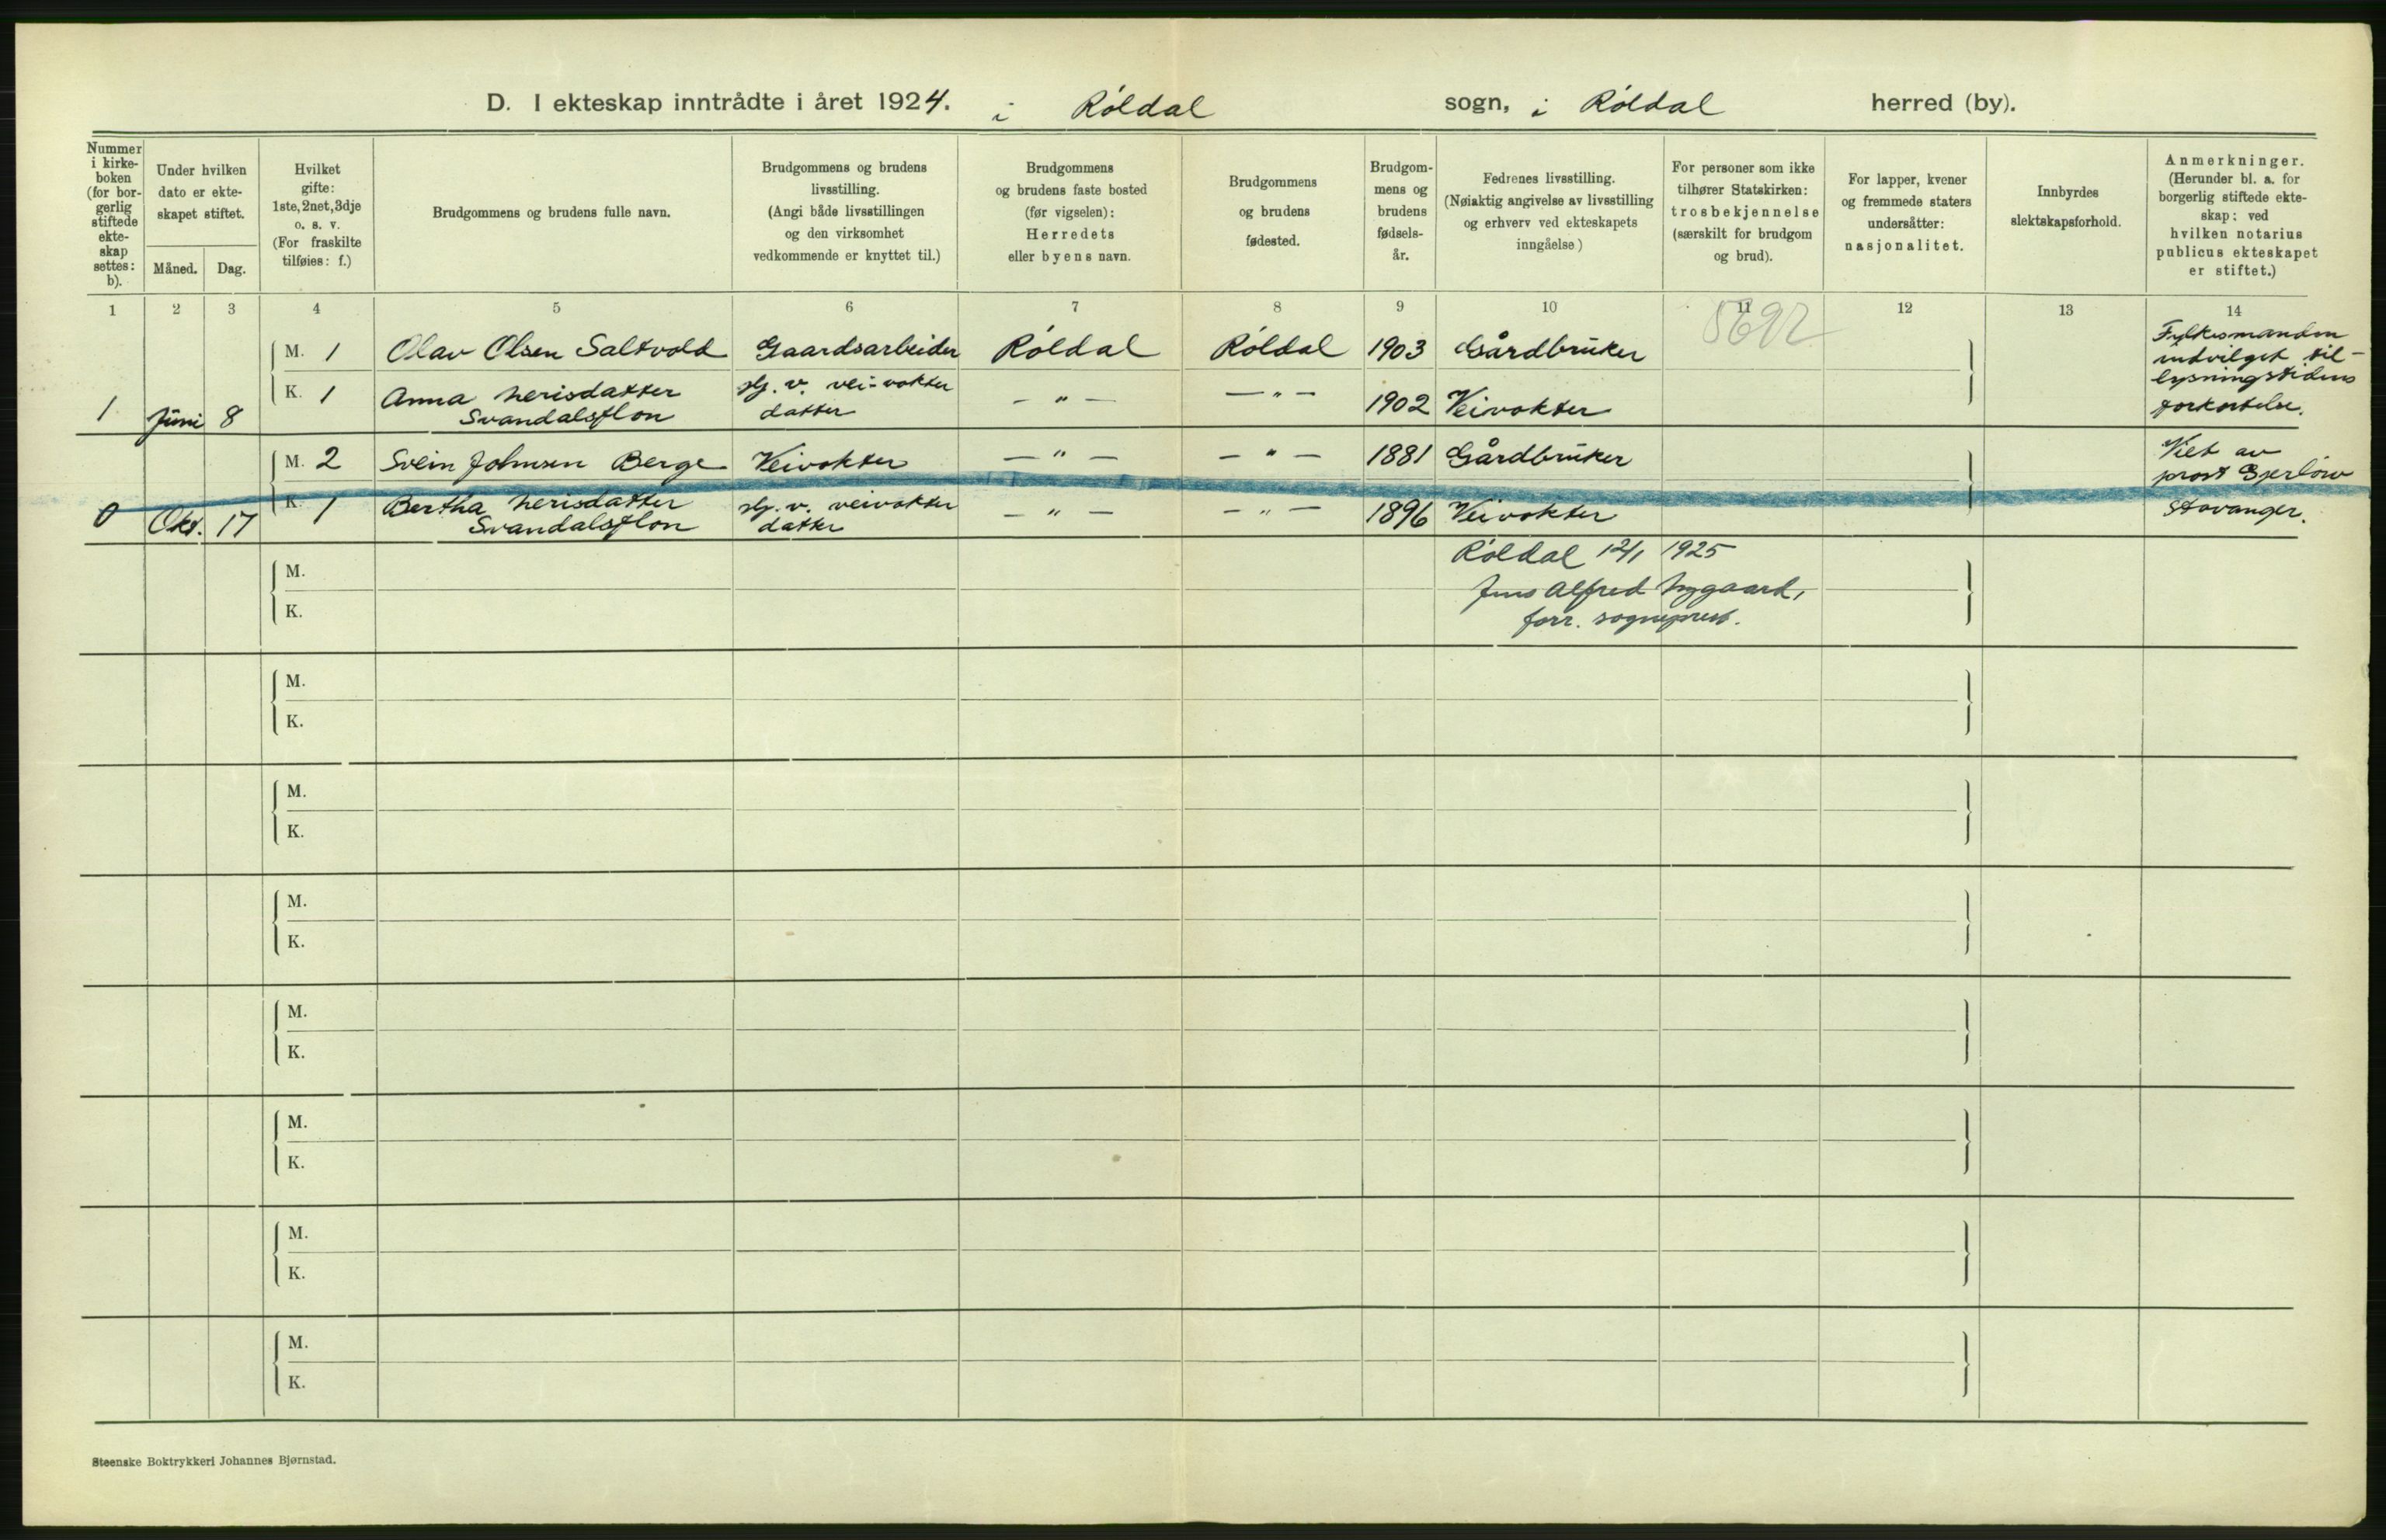 D. I ekteskap inntrådte i året 1924. i Röldal sogn, i Röldal herred (by).
Nummer i kirke- boken (for bor- gerlig stiftede ekte- skap settes: b).
Under hvilken dato er ekte- skapet stiftet.
Måned. Dag.
Hvilket gifte: 1ste, 2net, 3dje o. s. v. (For fraskilte tilføies: f.)
Brudgommens og brudens fulle navn.
Brudgommens og brudens livsstilling. (Angi både livsstillingen og den virksomhet vedkommende er knyttet til.)
Brudgommens og brudens faste bosted (før vigselen): Herredets eller byens navn.
Brudgommens og brudens fødested.
Brudgom- mens og brudens fødsels- år.
Fedrenes livsstilling. (Nøiaktig angivelse av livsstilling og erhverv ved ekteskapets inngåelse)
For personer som ikke tilhører Statskirken: trosbekjennelse (særskilt for brudgom og brud).
For lapper, kvener og fremmede staters undersåtter: nasjonalitet.
Innbyrdes slektskapsforhold.
Anmerkninger. (Herunder bl. a. for borgerlig stiftede ekte- skap: ved hvilken notarius publicus ekteskapet er stiftet.)
1 2 3 4 5 6 7 8 9 10 11 12 13 14
5692
M. 1 Olav Olsen Saltvold Gaardsarbeider Röldal Röldal 1903 Gårdbruker
Fylkesmanden
indvilget til-
lysningstidens
forkortelse.
1 Juni 8 K. 1 Anna Nerisdatter
Svandalsflon
hj. v. vei-vokter
datter
— " — — " — 1902 Veivokter
M. 2 Svein Johnsen Berge Veivokter — " — — " — 1881 Gårdbruker
Viet av
prost Gjerlöw
Stavanger.
0 Okt. 17 K. 1 Bertha Nerisdatter
Svandalsflon
hj. v. veivokter
datter
— " — — " — 1896 Veivokter
Röldal 12/1 1925
Jens Alfred Nygaard,
forr. sogneprest.
M.
K.
M.
K.
M.
K.
M.
K.
M.
K.
M.
K.
M.
K.
M.
K.
Steenske Boktrykkeri Johannes Bjørnstad.